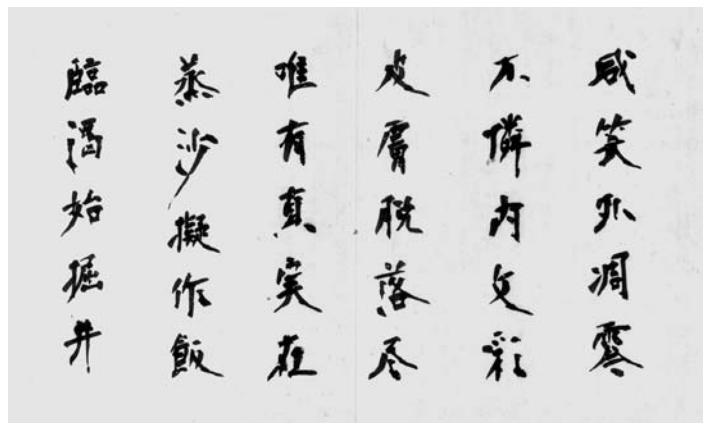 咸笑外凋零
不憐内文彩
皮膚脱落尽
唯有真実在
蒸沙擬作飯
臨渇始掘井